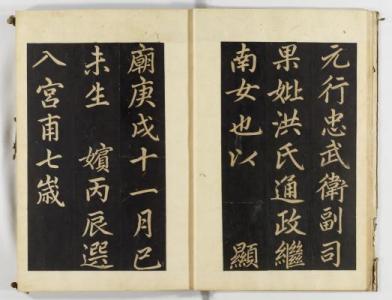 元行忠武衛副司
果妣洪氏通政繼
南女也以 顯
廟庚戌十一月己
未生 嬪丙辰選
入宮甫七歲